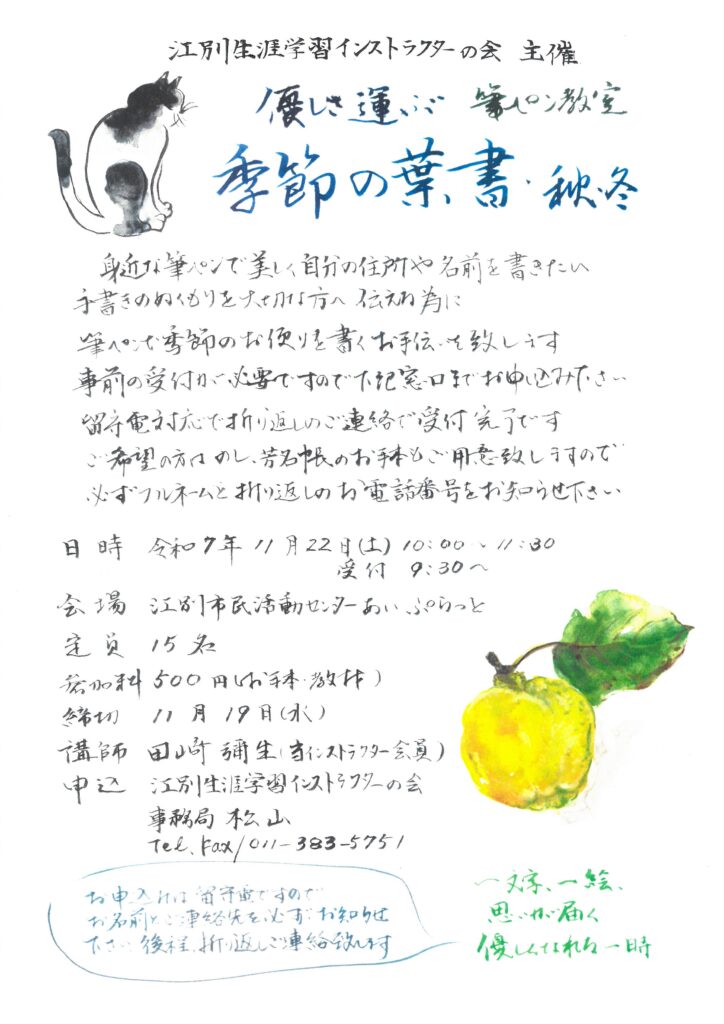 江別生涯学習インストラクターの会 主催
優しさ運ぶ 筆ペン教室
季節の葉書・秋冬
身近な筆ペンで美しく自分の住所や名前を書きたい
手書きのぬくもりを大切な方へ伝える為に
筆ペンで季節のお便りを書くお手伝いを致します
事前の受付が必要ですので下記窓口までお申し込み下さい
留守電対応で折り返しのご連絡で受付完了です
ご希望の方はのし、芳名帳のお手本もご用意致しますので
必ずフルネームと折り返しのお電話番号をお知らせ下さい
日時 令和7年11月22日(土)10:00〜11:30
受付 9:30〜
会場 江別市民活動センターあい・ぷらっと
定員 15名
参加料 500円(お手本・教材)
締切 11月19日(水)
講師 田崎彌生(当インストラクター会員)
申込 江別生涯学習インストラクターの会
事務局 松山
Tel.Fax/011-383-5751
お申込みは留守電ですので
お名前とご連絡先を必ずお知らせ
下さい後程、折り返しご連絡致します
一文字、一絵、
思いが届く
優しくなれる一時